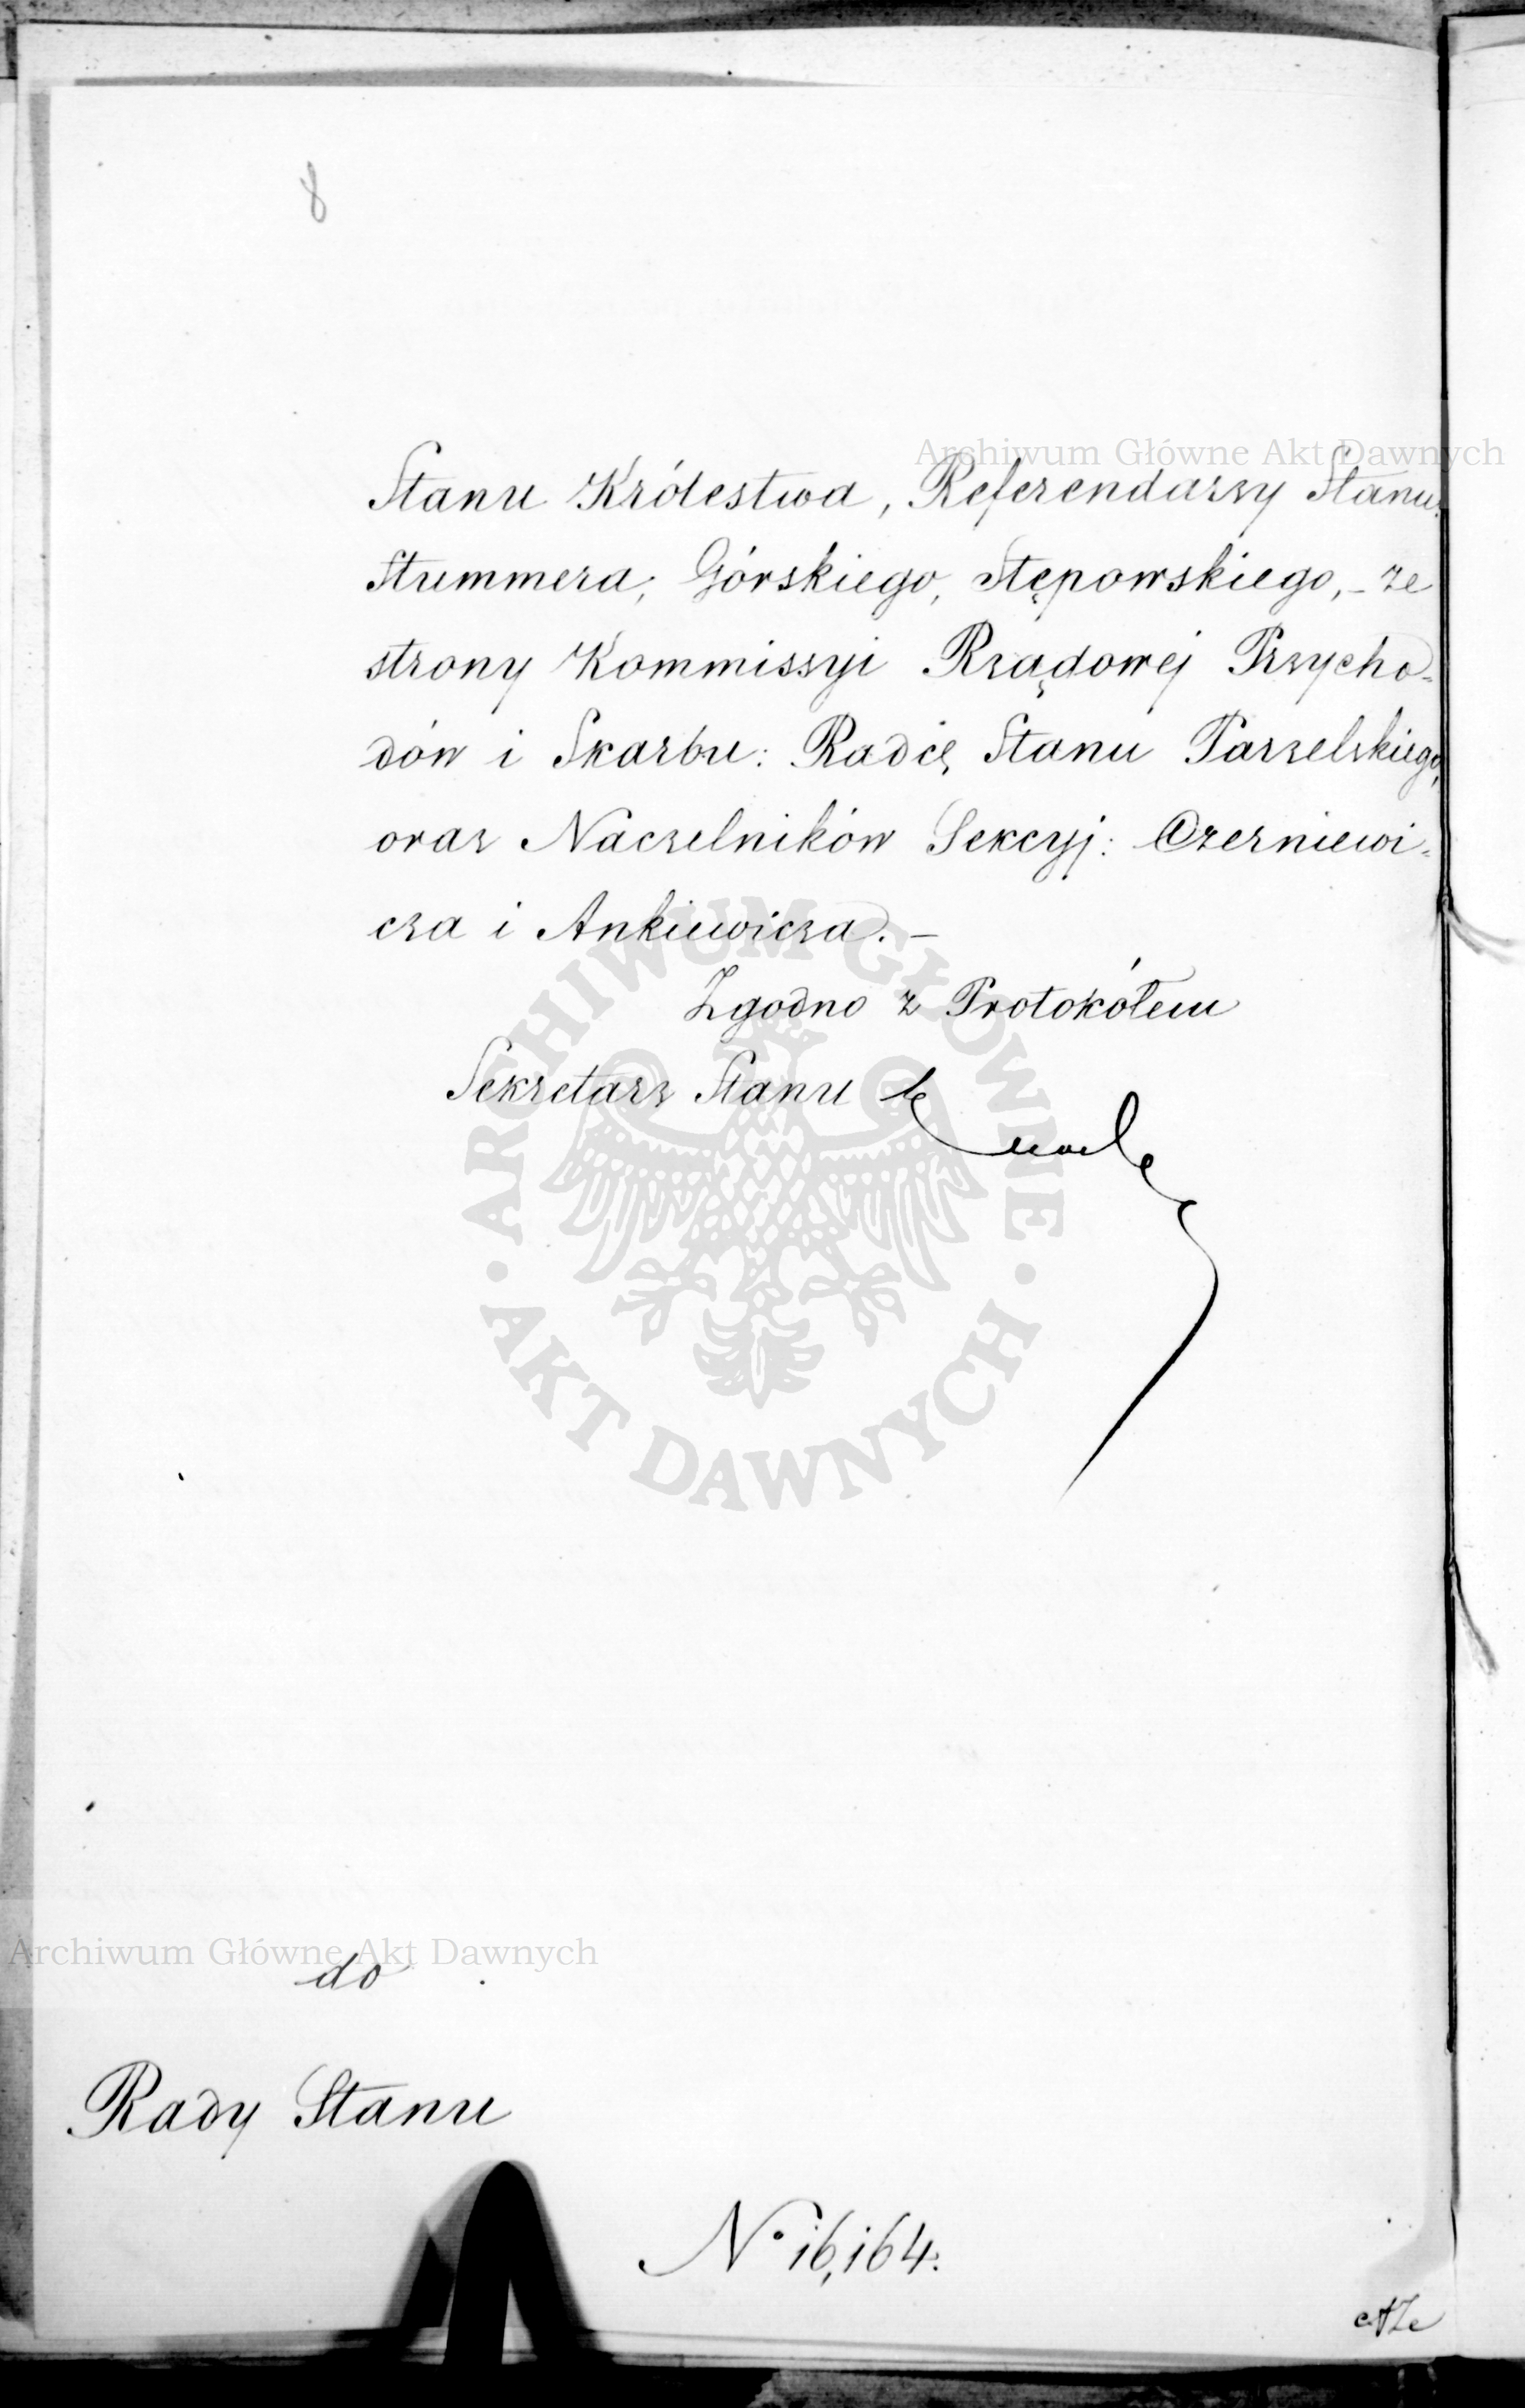 8
Archiwum Główne Akt Dawnych
Stanu Królestwa, Referendarzy Stanu:
Stummera, Górskiego, Stępowskiego, – ze
strony Kommissyi Rządowej Przycho=
dów i Skarbu: Radcę Stanu Parzelskiego,
oraz Naczelników Sekcyj: Czerniewi=
cza i Ankiewicza. –
Zgodno z Protokółem
Sekretarz Stanu
ARCHIWUM GŁÓWNE
AKT DAWNYCH
Archiwum Główne Akt Dawnych
do
Rady Stanu
No 16,164.